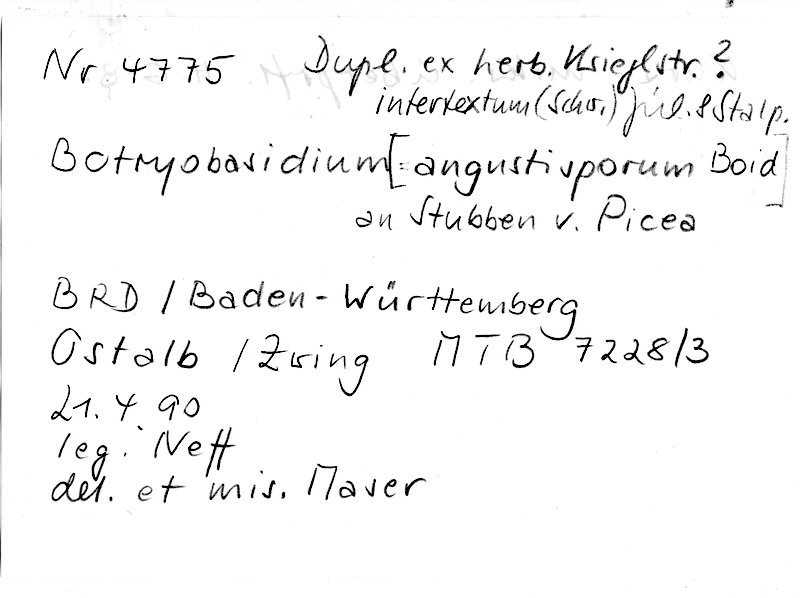 Nr. 4775 Dupl. ex herb. Krieglstr.?
intertextum (Schw.) Jül. & Stalp.
Botryobasidium [= angustisporum Boid]
an Stubben v. Picea
BRD / Baden-Württemberg
Ostalb / Zwing MTB 7228/3
21. 4 90
leg. Neff
det. et mis. Mayer